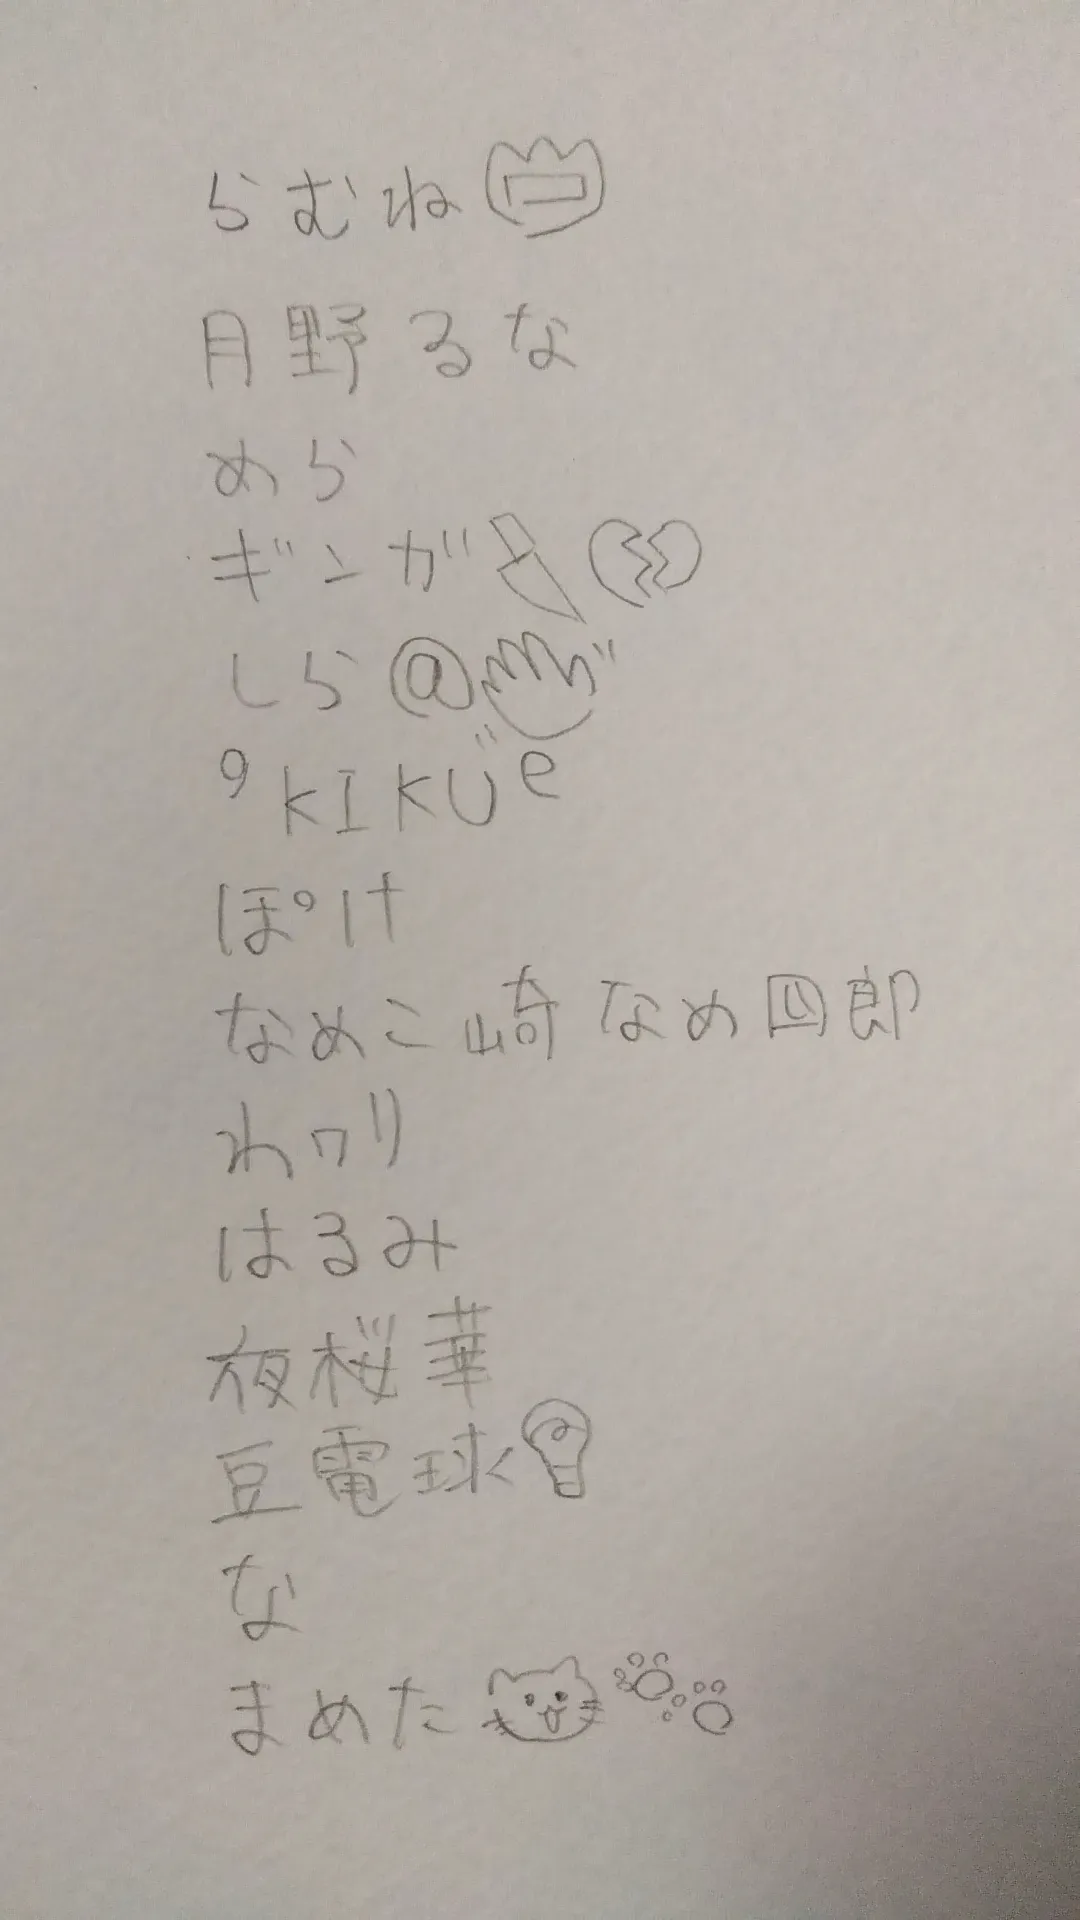 らむね📛
月野るな
めら
ギンガ🔪💔
しら@👏
°KIKÜe
ぽけ
なめこ崎なめ四郎
わワリ
はるみ
夜桜華
豆電球💡
な
まめた🐱🐾